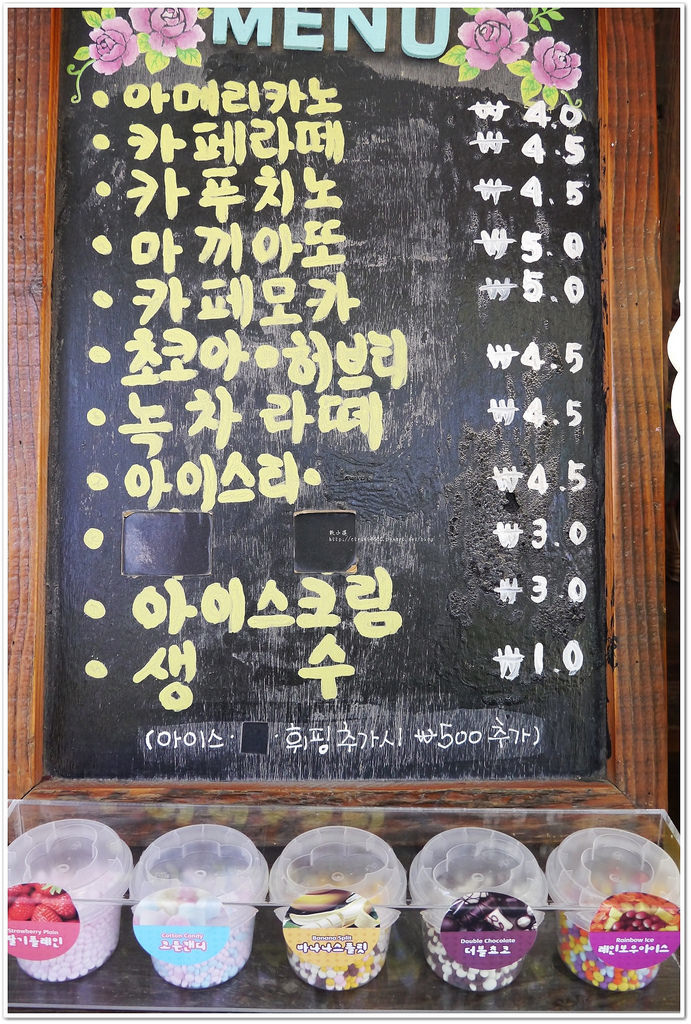 MENU
· 아메리카노 ₩ 4.0
· 카페라떼 ₩ 4.5
· 카푸치노 ₩ 4.5
· 마끼아또 ₩ 5.0
· 카페모카 ₩ 5.0
· 초코아·허브티 ₩ 4.5
· 녹차 라떼 ₩ 4.5
· 아이스티· ₩ 4.5
· ₩ 3.0
· 아이스크림 ₩ 3.0
· 생 수 ₩ 1.0
(아이스· ·휘핑추가시 ₩500 추가)
Strawberry Plain
딸기플레인
Cotton Candy
코튼캔디
Banana Split
바나나스플릿
Double Chocolate
더블초코
Rainbow Ice
레인보우아이스